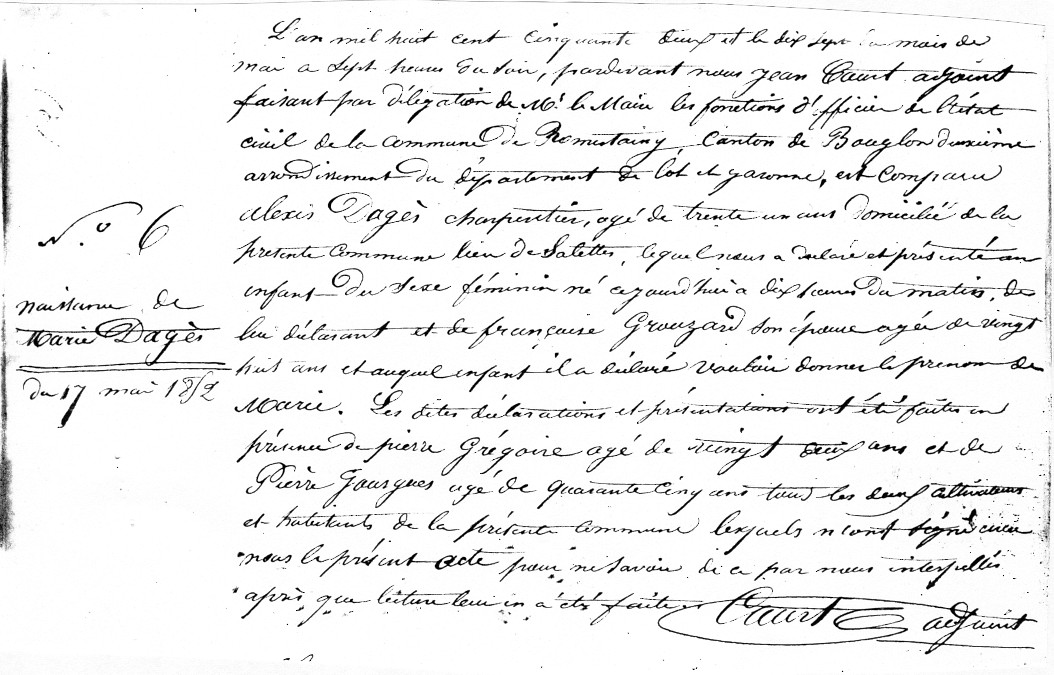 N.º 6
naissance de
Marie Dagès
du 17 mai 1852
L'an mil huit cent cinquante deux et le dix sept du mois de
mai a sept heures du soir, pardevant nous jean Court adjoint
faisant par délégation de Mr. le Maire les fonctions d'officier de l'état
civil de la commune de Romestaing, Canton de Bouglon deuxième
arrondissement du département de lot et garonne, est comparu
alexis Dagès charpentier, agé de trente un ans domicilié de la
présente commune lieu de Salettes, lequel nous a déclaré et présenté un
enfant du sexe féminin né cejourdhui a dix heures du matin, de
lui déclarant et de françoise Grouzard son épouse agée de vingt
huit ans et auquel enfant il a déclaré vouloir donner le prenom de
Marie. Les dites déclarations et présentations ont été faites en
présence de pierre Grégoire agé de vingt deux ans et de
Pierre Gourgues agé de quarante cinq ans tous les deux cultivateurs
et habitants de la présente commune lesquels n'ont signé
nous le présent acte pour ne savoir de ce par nous interpellés
après que lecture leur en a été faite
Court adjoint